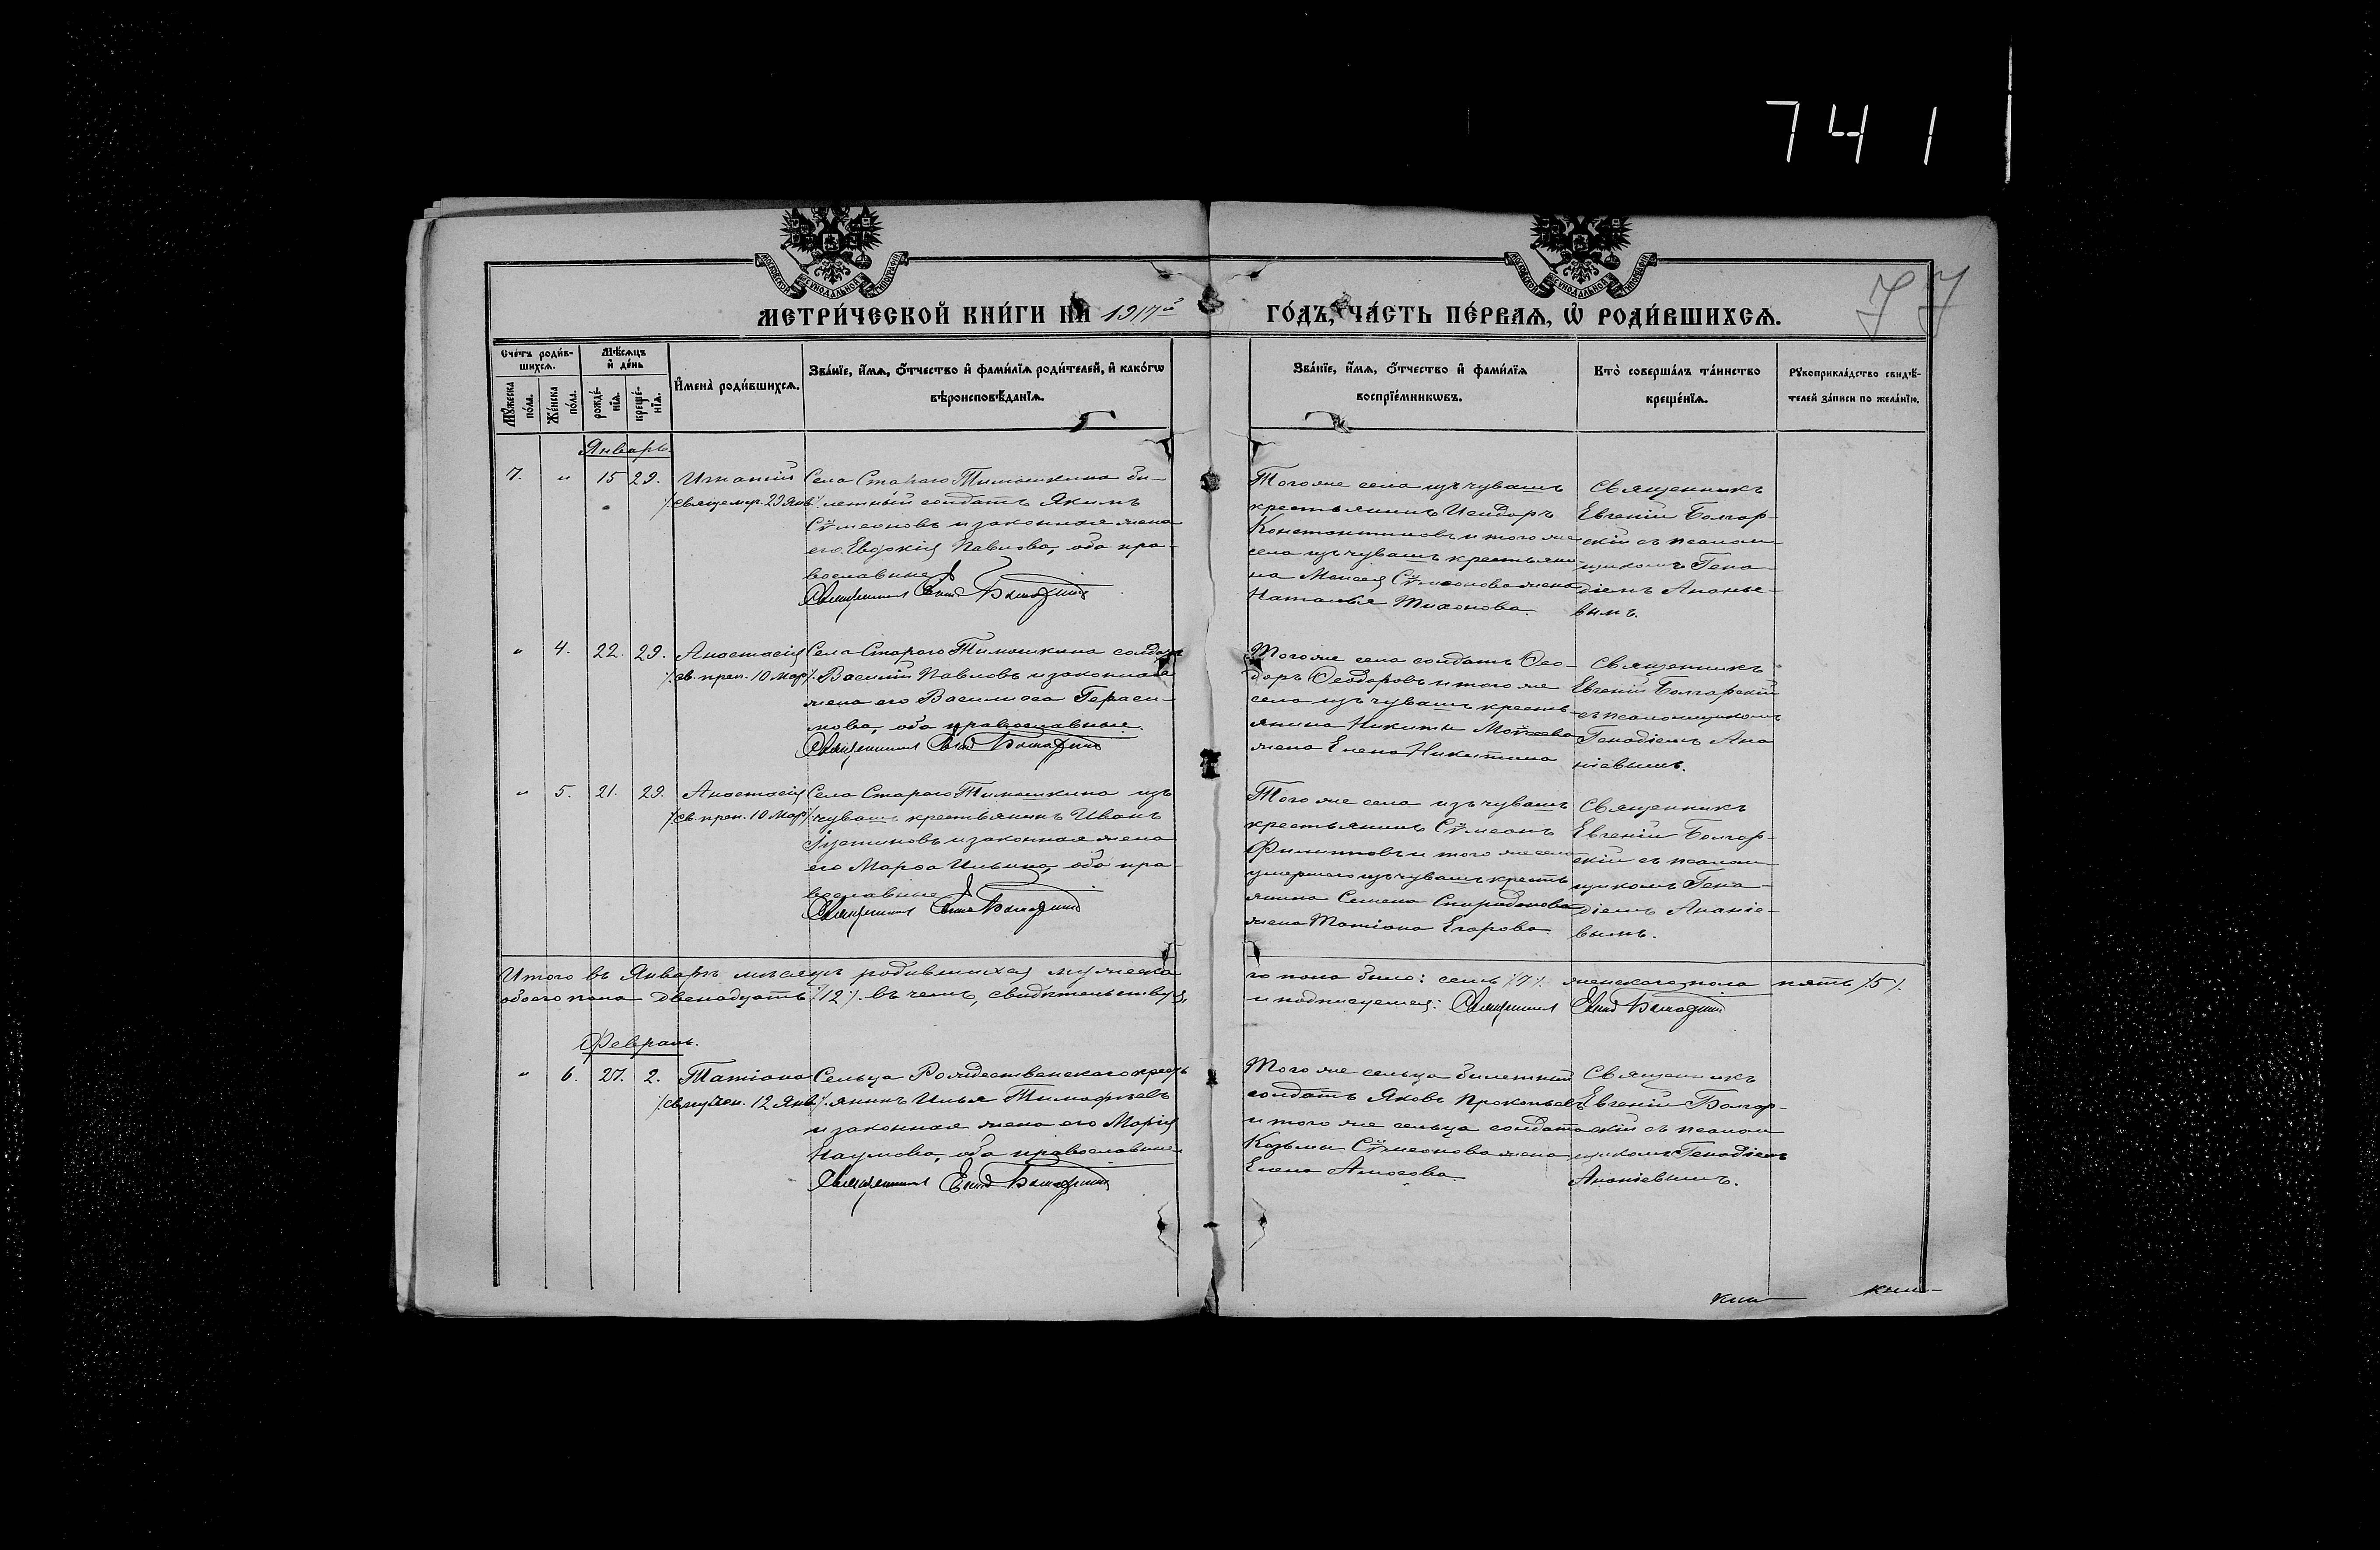 741
77
МОСКОВСКОЙ СѴНОДАЛЬНОЙ ТИПОГРАФІИ
МОСКОВСКОЙ СѴНОДАЛЬНОЙ ТИПОГРАФІИ
МЕТРИ́ЧЕСКОЙ КНИ́ГИ НА 1917й
ГО́ДЪ, ЧА́СТЬ ПЕ́РВАѦ, Ѡ РОДИ́ВШИХСѦ.
Сче́тъ роди́в-
шихсѧ.
Мѣ́сѧцъ
и҆ де́нь
Мꙋ́жеска
по́ла.
Же́нска
по́ла.
рожде́-
нїѧ.
креще́-
нїѧ.
И҆мена̀ роди́вшихсѧ.
Зва́нїе, и҆́мѧ, ѻ҆́тчество и҆ фами́лїѧ роди́телей, и҆ како́гѡ
вѣроисповѣ́данїѧ.
Зва́нїе, и҆́мѧ, ѻ҆́тчество и҆ фами́лїѧ
воспрїе́мникѡвъ.
Кто̀ соверша́лъ та́инство
креще́нїѧ.
Рꙋкоприкла́дство свидѣ́-
телей за́писи по жела́нїю.
Январь.
7. " 15 29. Игнатій
/:священмуч. 29 Янв:/
Села Стараго Тимошкина би-
летный солдатъ Якимъ
Сѵмеоновъ и законная жена
его Евдокія Павлова, оба пра-
вославные
Священникъ Евгеній Болгарскій
Того же села изъ чувашъ
крестьянинъ Исидоръ
Константиновъ и того же
села изъ чувашъ крестьяни-
на Моисея Сѵмеонова жена
Наталья Тихонова.
Священникъ
Евгеній Болгар-
скій съ псалом-
щикомъ Гена-
діемъ Ананье-
вымъ.
" 4. 22. 29. Анастасія
/:св. преп. 10 Мар:/
Села Стараго Тимошкина солдатъ
Василій Павловъ и законная
жена его Василиса Гераси-
мова, оба православные.
Священникъ Евгеній Болгарскій
Того же села солдатъ Ѳео-
доръ Ѳеодоровъ и того же
села изъ чувашъ кресть-
янина Никиты Моѵсеева
жена Елена Никитина
Священникъ
Евгеній Болгарскій
съ псаломщикомъ
Генадіемъ Ана
ніевымъ.
" 5. 21. 29. Анастасія
/:св. преп. 10 Мар:/
Села Стараго Тимошкина изъ
чувашъ крестьянинъ Иванъ
Іустиновъ и законная жена
его Марѳа Ильина, оба пра-
вославные
Священникъ Евгеній Болгарскій
Того же села изъ чувашъ
крестьянинъ Сѵмеонъ
Филипповъ и того же села
умершаго изъ чувашъ кресть
янина Семена Спиридонова
жена Татіана Егорова.
Священникъ
Евгеній Болгар-
скій съ псалом-
щикомъ Гена-
діемъ Ананіе-
вымъ.
Итого въ Январѣ мѣсяцѣ родившихся мужеска
го пола было: семь /:7:/. женскаго пола пять /:5:/.
обоего пола двенадцать /:12:/. въ чемъ, свидѣтельствуя,
и подписуемся: Священникъ Евгеній Болгарскій
Февраль.
" 6. 27. 2. Татіана
/:св. мучен. 12 Янв:/
Сельца Рождественскаго кресть
янинъ Илья Тимофѣевъ
и законная жена его Марія
Наумова, оба православные
Священникъ Евгеній Болгарскій
Того же сельца билетный
солдатъ Яковъ Прокопьевъ
и того же сельца солдата
Козьмы Сѵмеонова жена
Елена Амосова.
Священникъ
Евгеній Болгар-
скій съ псалом
щикомъ Генадіемъ
Ананіевымъ.